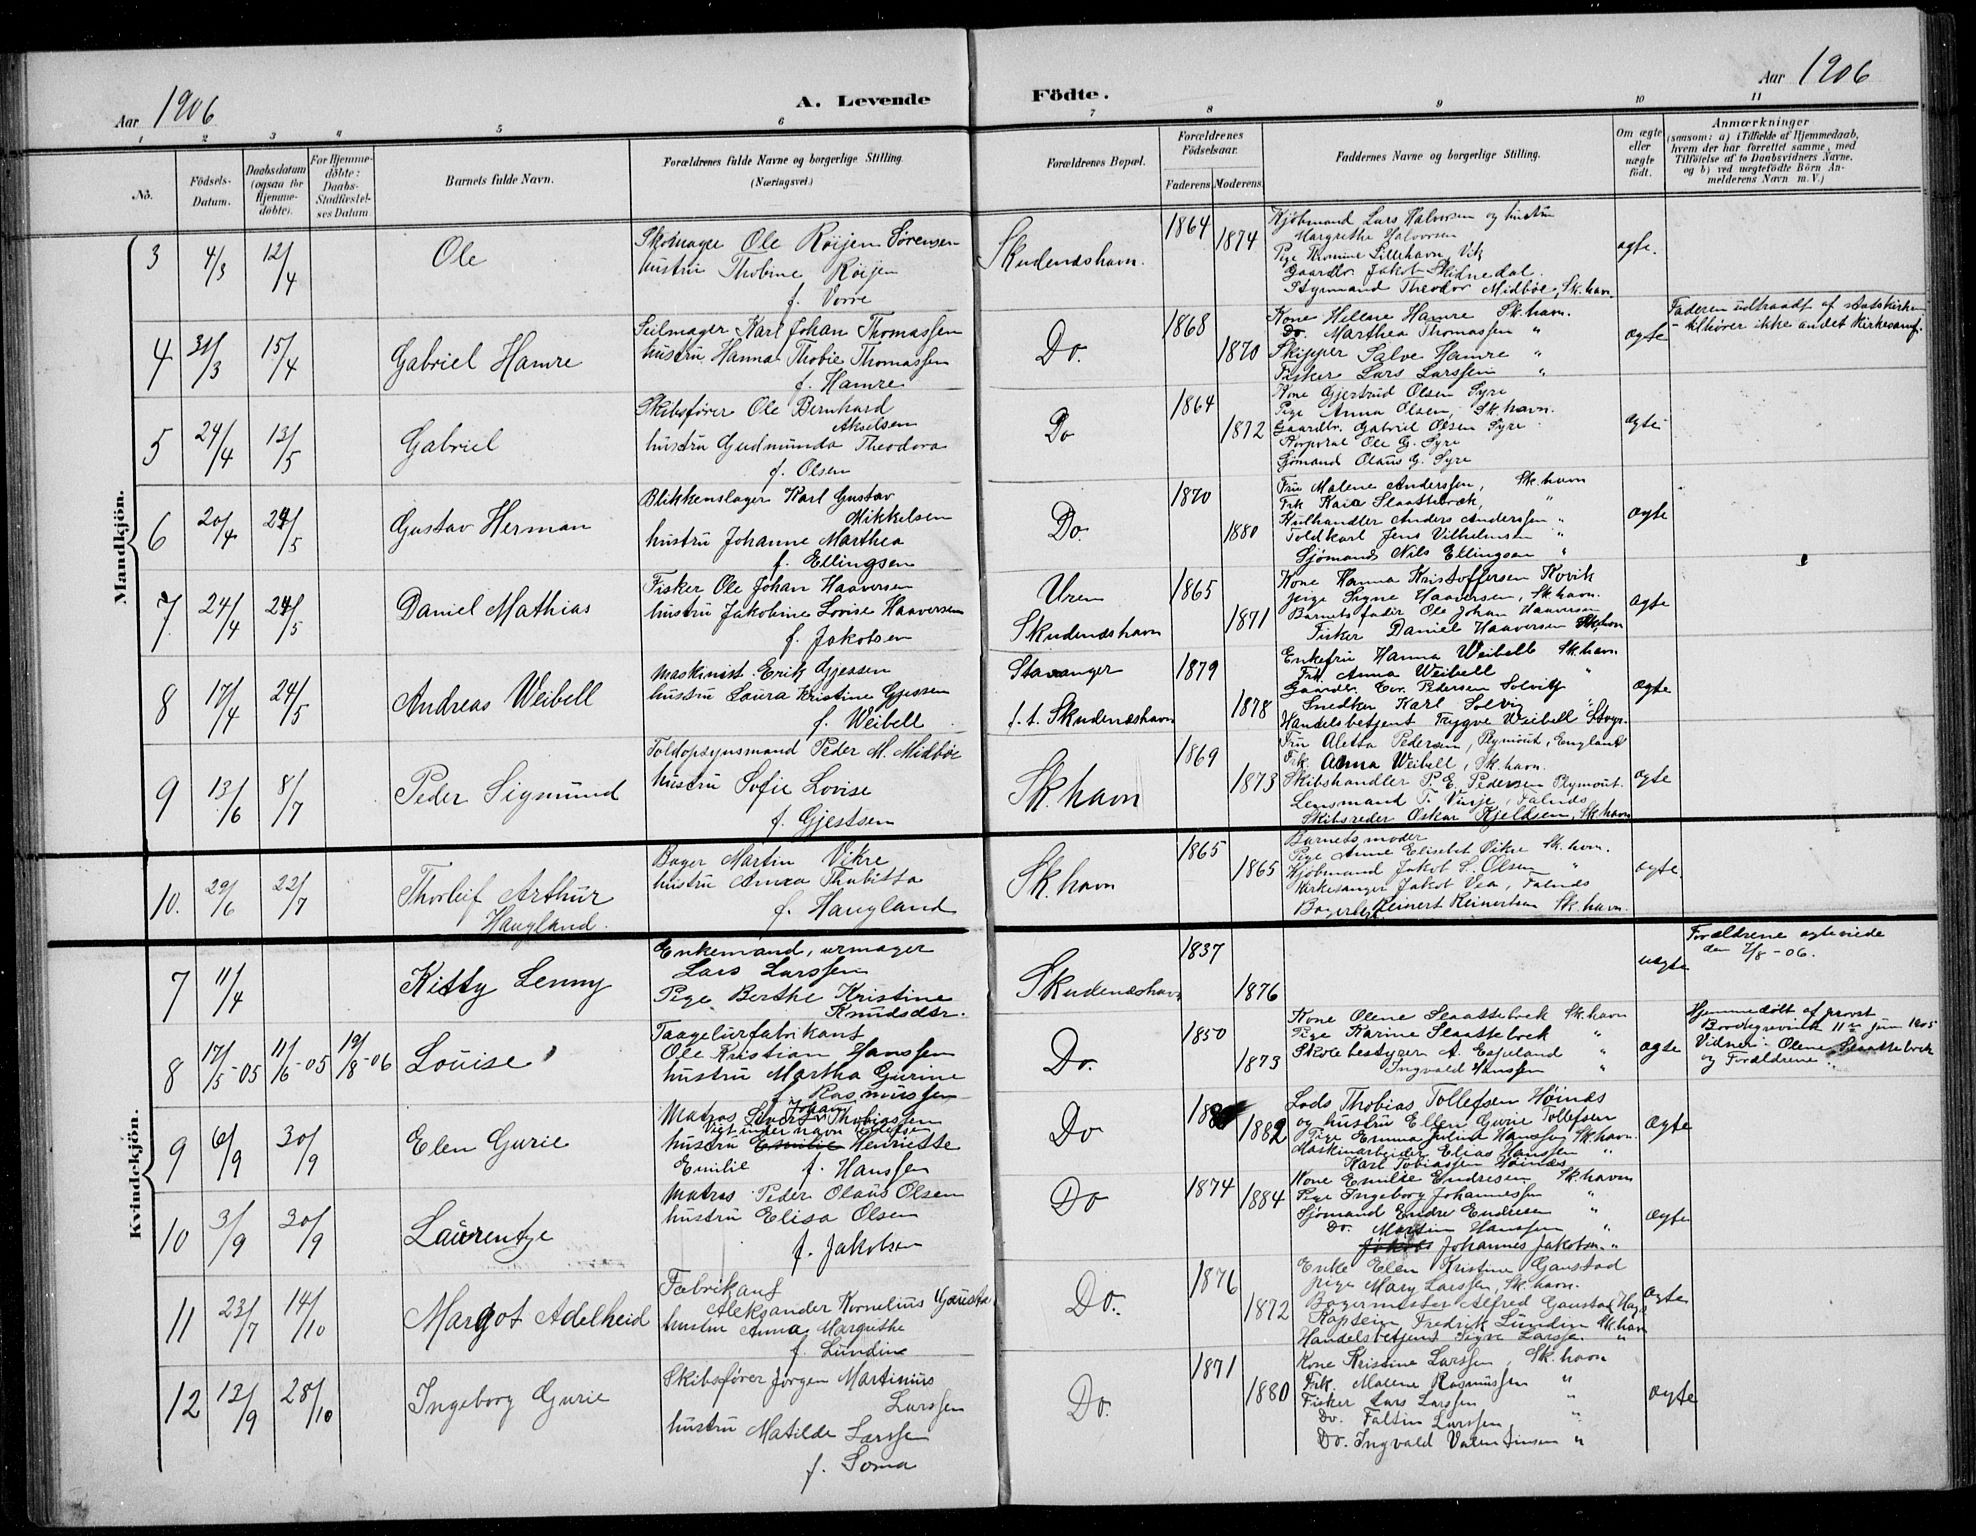 Aar 1906
A. Levende Födte.
Aar 1906
1 2 3 4 5 6 7 8 9 10 11
No.
Födsels-Datum.
Daabsdatum (ogsaa for Hjemme-döbte).
For Hjemme-döbte: Daabs-Stadfæstel-ses Datum
Barnets fulde Navn.
Forældrenes fulde Navne og borgerlige Stilling. (Næringsvei.)
Forældrenes Bopæl.
Forældrenes Födselsaar.
Faderens. Moderens.
Faddernes Navne og borgerlige Stilling.
Om ægte eller uægte födt.
Anmærkninger
(saasom: a) i Tilfælde af Hjemmedaab, hvem der har forrettet samme, med Tilföielse af to Daabsvidners Navne, og b) ved uægtefödte Börn Anmelderens Navn m. V.)
Mandkjön.
3 4/3 12/4 Ole
Skomager Ole Röijen Sörensen
hustru Thobine Röijen
f. Vorre
Skudeneshavn. 1864 1874
Kjöbmand Lars Halvorsen og hustru
Margrethe Halvorsen
Pige Thomine Sillehavn, Vik
Gaardbr. Jakob Skidnedal.
Styrmand Theodor Midböe, Sk.havn.
ægte.
4 31/3 15/4 Gabriel Hamre
Seilmager Karl Johan Thomassen
hustru Hanna Thobie Thomassen
f. Hamre
Do. 1868 1870
Kone Helene Hamre Sk.havn.
Do. Marthea Thomassen "
Skipper Salve Hamre "
Fisker Lars Larssen "
ægte
Faderen udtraadt af statskirken
- tilhører ikke andet kirkesamf.
5 24/4 13/5 Gabriel
Skibsförer Ole Bernhard
Akselsen
hustru Gudmunda Theodora
f. Olsen
Do 1864 1872
Kone Gjertrud Olsen Syre
Pige Anna Olsen, Sk.havn.
Gaardbr. Gabriel Olsen Syre
Korporal Ole G. Syre
Sjömand Olaus G. Syre
ægte
6 20/4 24/5 Gustav Herman
Blikkenslager Karl Gustav
Mikkelsen
hustru Johanne Marthea
f. Ellingsen
Do. 1870 1880
Fru Malene Anderssen, Sk.havn
Frk Kaia Slaattebræk, "
Kulhandler Anders Anderssen "
Toldkarl Jens Vilhelmsen "
Sjömand Nils Ellingsen "
ægte
7. 24/4 24/5 Daniel Mathias
Fisker Ole Johan Haaversen
hustru Jakobine Lovise Haaversen
f. Jakobsen
Uren
Skudeneshavn 1865 1871
Kone Hanna Kristoffersen Kovik
pige Signe Haaversen, Sk.havn.
Barnets fader Ole Johan Haaversen
Fisker Daniel Haaversen Sk.havn
ægte
8 17/4 24/5 Andreas Weibell
Maskinist Erik Gjessen
hustru Laura Kristine Gjessen
f. Weibell
Stavanger
f.t. Skudeneshavn 1879 1878
Enkefru Hanna Weibell Sk.havn
Frk. Anna Weibell "
Gaardbr. Edv. Pedersen Solvig
Snedker Karl Solvig "
Handelsbetjent Trygve Weibell Stvgr.
ægte
9 13/6 8/7 Peder Sigmund
Toldopsynsmand Peder M. Midböe
hustru Sofie Lovise
f. Gjestsen
Sk.havn 1869 1873
Fru Aletta Pedersen, Plymout, England
Frk. Anna Weibell, Sk.havn.
Skibshandler P. E. Pedersen Plymout.
Lensmand T. Vinje, Falnes
Skibsreder Oskar Kjeldsen, Sk.havn
ægte
10. 29/6 22/7 Thorleif Arthur
Haugland.
Bager Martin Vikre
hustru Anna Thabitta
f. Haugland
Sk.havn 1865 1865
Barnets moder
Pige Anne Elisabet Vikre Sk.havn.
Kjöbmand Jakob S. Olsen "
Kirkesanger Jakob Vea, Falnes
Bager Reinert Reinertsen Sk.havn.
ægte.
Kvindekjön.
7 11/4 Kitty Lenny
Enkemand, urmager
Lars Larssen
Pige Berthe Kristine
Knudsdtr.
Skudeneshavn 1837 1876
uægte
Forældrene egteviede
den 7/8-06.
8 17/5-05 11/6-05 19/8-06 Louise
Taagelurfabrikant
Ole Kristian Hanssen
hustru Martha Gurine
f. Rasmussen
Do. 1850 1873
Kone Olene Slaattebræk Sk.havn
Pige Karine Slaattebræk "
Skolebestyrer A. Espeland "
Ingvald Hanssen "
ægte
Hjemmedöbt af provst
Bordegrevink 11te juni 1905
Vidner: Olene Slaattebræk
og Forældrene.
9 6/9 30/9 Elen Gurie
Matros Johan Thobiassen
hustru Emilie Henriette
Emilie f. Hanssen
Do 1882
Lods Thobias Tollefsen Höines
og hustru Ellen Gurie Tollefsen
Pige Emma Julie Hanssen Sk.havn.
Maskinarbeider Elias Hanssen "
Karl Tobiassen Höines
ægte
10 3/9 30/9 Laurentze
Matros Peder Olaus Olsen
hustru Elisa Olsen
f. Jakobsen
Do 1874 1884
Kone Emilie Endresen Sk.havn
Pige Ingeborg Johannessen "
Sjömand Endre Endresen "
Do. Martin Hanssen "
Johannes Jakobsen "
ægte
11 23/7 14/10 Margot Adelheid
Fabrikant
Aleksander Kornelius Gausta
hustru Anna Margrethe
f. Lundin
Do. 1876 1872
Enke Elen Kristine Ganstad
pige Mary Larssen, Sk.havn.
Bagermester Alfred Ganstad, Hags.
Kaptein Fredrik Lundin Sk.havn
Handelsbetjent Sigve Larssen "
ægte
12 12/9 28/10 Ingeborg Gurie
Skibsförer Jörgen Martinius
Larssen
hustru Matilde Larssen
f. Soma
Do. 1871 1880
Kone Kristine Larssen, Sk.havn
Frk. Malene Rasmussen "
Fisker Lars Larssen "
Do. Faltin Larssen "
Do. Ingvald Valentinsen "
ægte